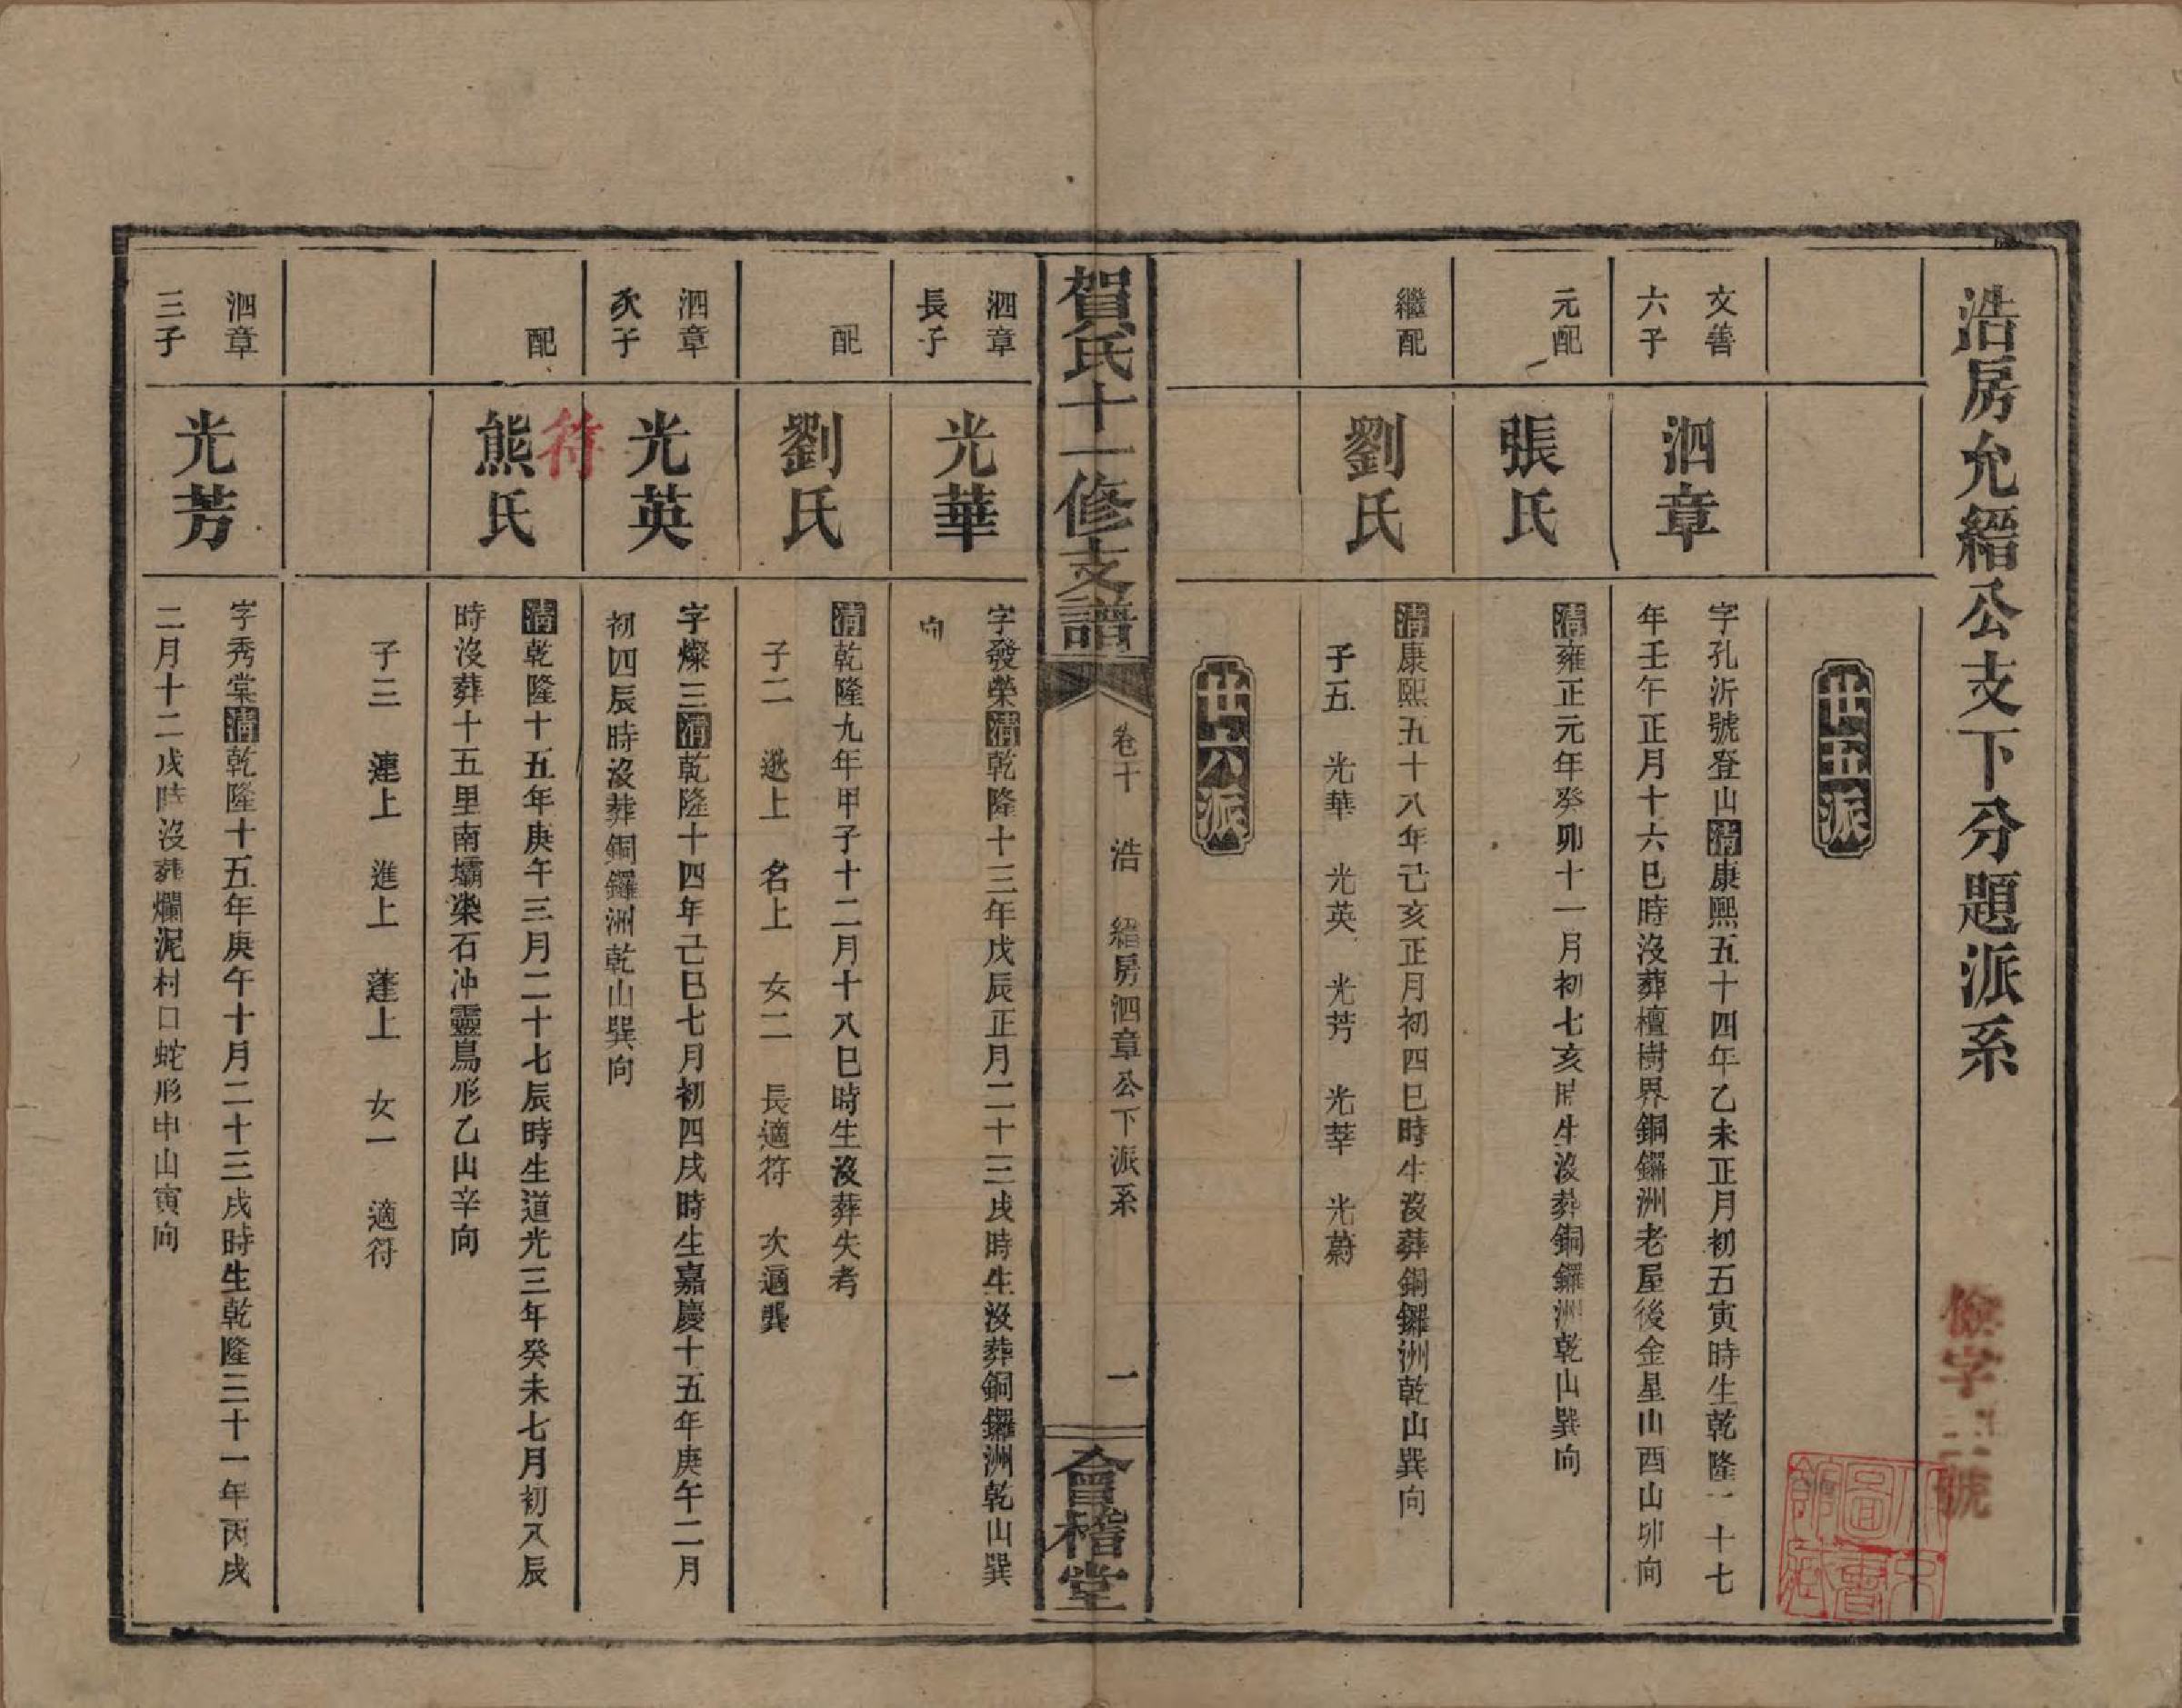 浩房允縉公支下分題派系
儉字
號
世五派
文善
六子
泗章
字孔沂號登山清康熙五十四年乙未正月初五寅時生乾隆二十七
年壬午正月十六巳時沒葬檀樹界銅鑼洲老屋後金星山酉山卯向
元配
張氏
清雍正元年癸卯十一月初七亥時生沒葬銅鑼洲乾山巽向
繼配
劉氏
清康熙五十八年己亥正月初四巳時生沒葬銅鑼洲乾山巽向
子五 光華 光英 光芳 光莘 光蔚
世六派
賀氏十一修支譜
卷十 浩 縉房泗章公下派系
一
會稽堂
泗章
長子
光華
字發榮清乾隆十三年戊辰正月二十三戌時生沒葬銅鑼洲乾山巽
向
配
劉氏
清乾隆九年甲子十二月十八巳時生沒葬失考
子二 遜上 名上 女二 長適符 次適龔
泗章
次子
光英
字燦三清乾隆十四年己巳七月初四戌時生嘉慶十五年庚午二月
初四辰時沒葬銅鑼洲乾山巽向
配
符
熊氏
清乾隆十五年庚午三月二十七辰時生道光三年癸未七月初八辰
時沒葬十五里南壩柒石冲靈鳥形乙山辛向
子三 連上 進上 蓬上 女一 適符
泗章
三子
光芳
字秀棠清乾隆十五年庚午十月二十三戌時生乾隆三十一年丙戌
二月十二戌時沒葬爛泥村口蛇形申山寅向